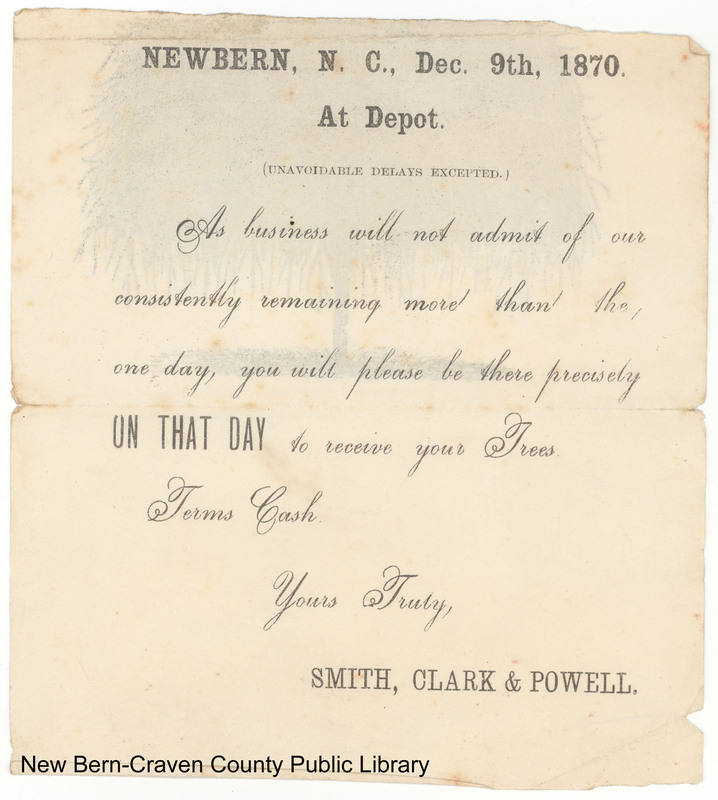 NEWBERN, N. C., Dec. 9th, 1870.
At Depot.
(UNAVOIDABLE DELAYS EXCEPTED.)
As business will not admit of our
consistently remaining more than the,
one day, you will please be there precisely
ON THAT DAY to receive your Trees.
Terms Cash.
Yours Truly,
SMITH, CLARK & POWELL.
New Bern-Craven County Public Library